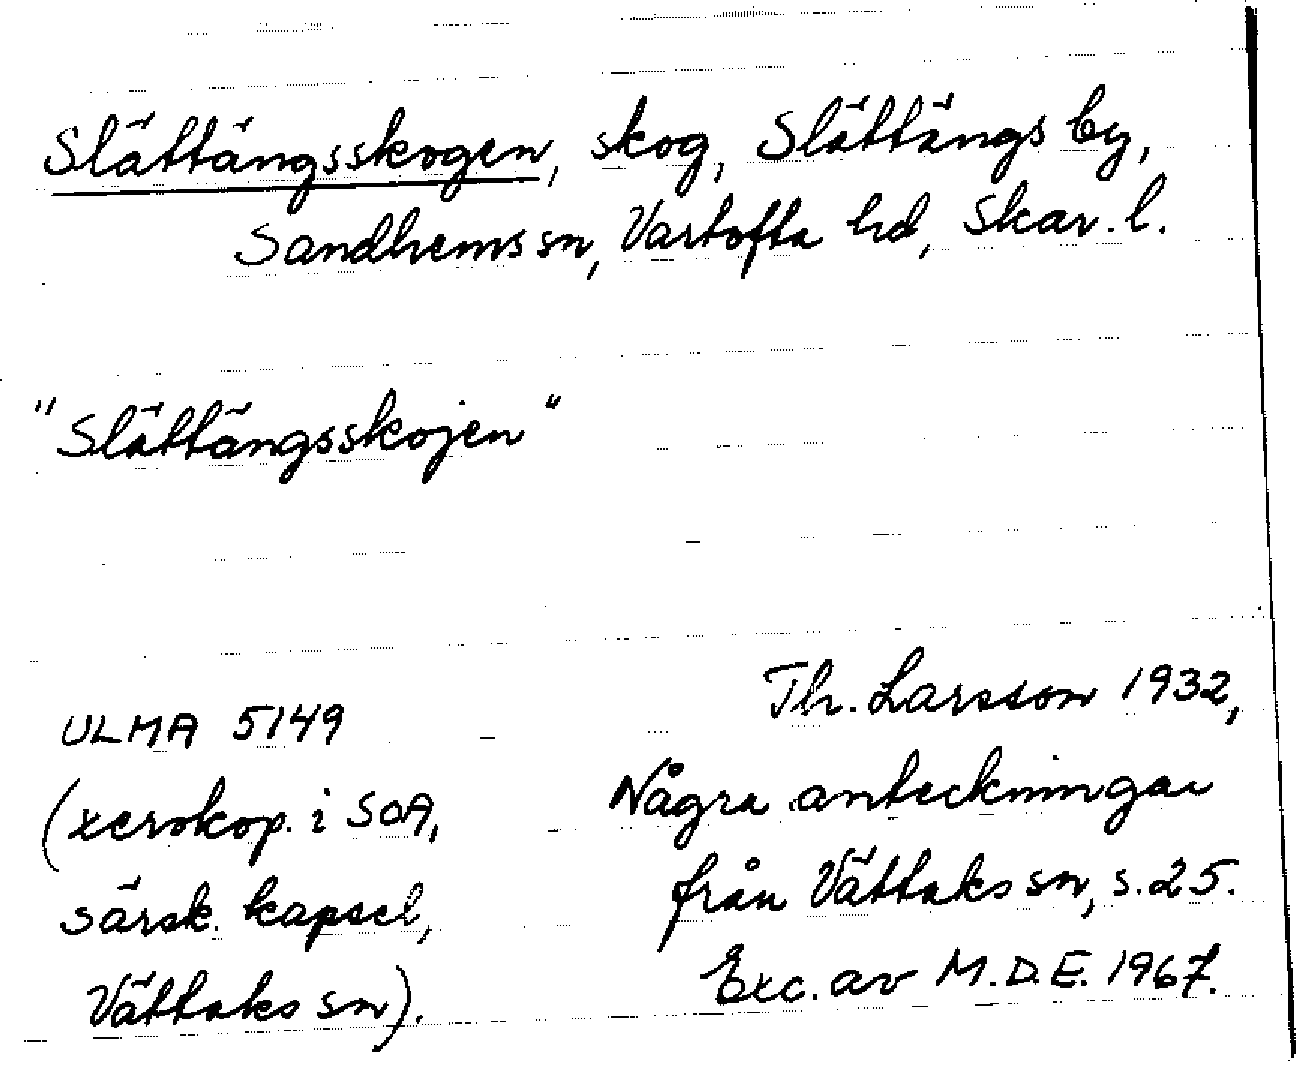 Slättängsskogen, skog, Slättängs by,
Sandhems sn, Vartofta hd, Skar. l.
"Slättängsskojen"
ULMA 5149
(xerokop. i SOA,
särsk. kapsel,
Vättaks sn).
Th. Larsson 1932,
Några anteckningar
från Vättaks sn, s. 25.
Exc. av M.D.E. 1967.